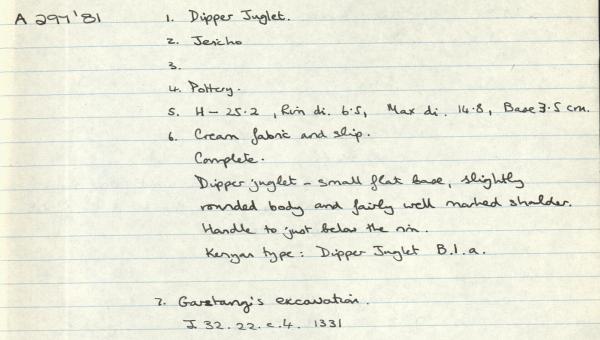 A 297'81
1. Dipper Juglet.
2. Jericho
3.
4. Pottery.
5. H - 25.2 , Rim di. 6.5, Max di. 14.8, Base 3.5 cm.
6. Cream fabric and slip.
Complete.
Dipper juglet - small flat base, slightly
rounded body and fairly well marked shoulder.
Handle to just below the rim.
Kenyan type: Dipper Juglet B.1.a.
7. Garstang's excavation.
J. 32. 22. c. 4. 1331